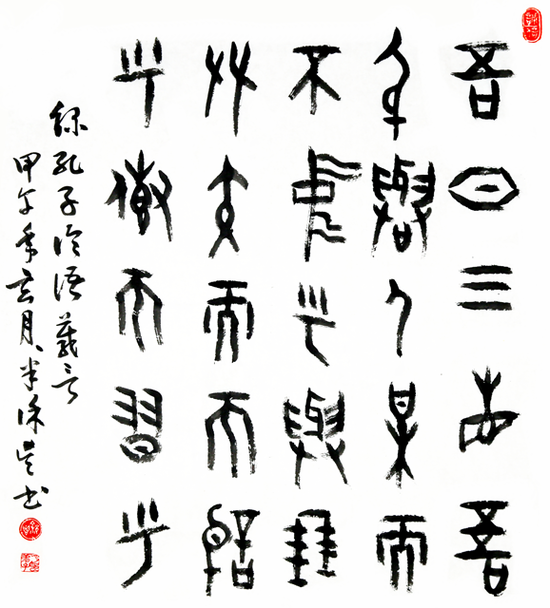 吾日三省吾
身與人某而
不忠乎與朋
友交而不信
乎傳不習乎
錄孔子论语箴言
甲午年玄月 书